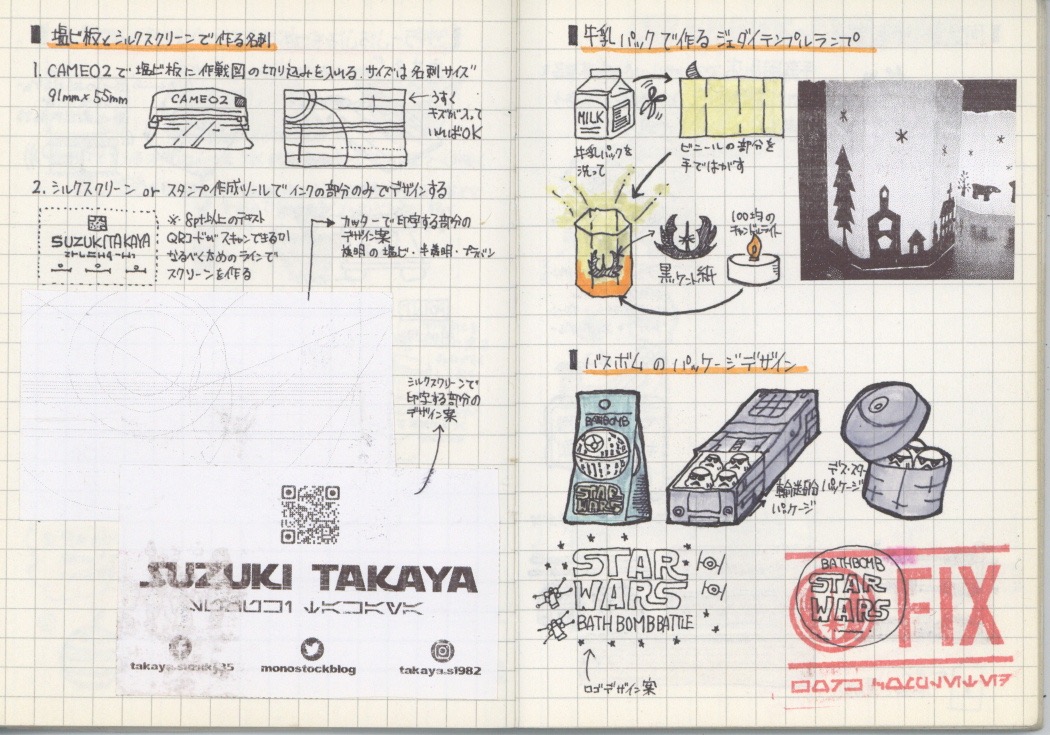 塩ビ板とシルクスクリーンで作る名刺
1. CAMEO2で塩ビ板に作戦図の切り込みを入れる. サイズは名刺サイズ
91mm×55mm
CAMEO2
うすく
キズが入って
いればOK
2. シルクスクリーン or スタンプ作成ツールでインクの部分のみでデザインする
SUZUKITAKAYA
※ 8pt以上のテキスト
QRコードがスキャンできるか
なるべくためのラインで
スクリーンを作る
カッターで印字する部分の
デザイン案
透明の塩ビ・半透明・プラバン
シルクスクリーンで
印字する部分の
デザイン案
SUZUKI TAKAYA
monostockblog
takaya.s1982
牛乳パックで作るジェダイテンプルランプ
MILK
牛乳パックを
洗って
ビニールの部分を
手ではがす
黒ケント紙
100均の
キャンドルライト
バスボムのパッケージデザイン
BATHBOMB
STAR
WARS
輸送船
パッケージ
デス・スター
パッケージ
STAR
WARS
BATH BOMB BATTLE
ロゴデザイン案
BATHBOMB
STAR
WARS
FIX